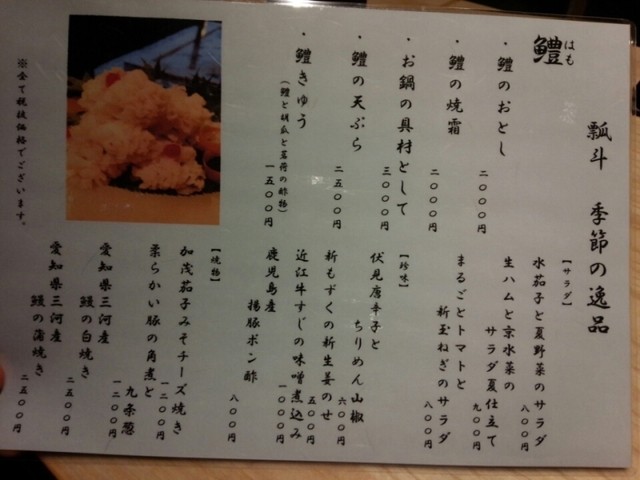 瓢斗 季節の逸品
鱧
はも
・鱧のおとし
二〇〇〇円
・鱧の焼霜
二〇〇〇円
・お鍋の具材として
三〇〇〇円
・鱧の天ぷら
二五〇〇円
・鱧きゅう
(鱧と胡瓜と茗荷の酢物)
一五〇〇円
【サラダ】
水茄子と夏野菜のサラダ
八〇〇円
生ハムと京水菜の
サラダ夏仕立て
九〇〇円
まるごとトマトと
新玉ねぎのサラダ
八〇〇円
【珍味】
伏見唐辛子と
ちりめん山椒
六〇〇円
新もずくの新生姜のせ
五〇〇円
近江牛すじの味噌煮込み
一〇〇〇円
鹿児島産
揚豚ポン酢
八〇〇円
【焼物】
加茂茄子みそチーズ焼き
一二〇〇円
柔らかい豚の角煮と
九条葱
一二〇〇円
愛知県三河産
鰻の白焼き
二五〇〇円
愛知県三河産
鰻の蒲焼き
二五〇〇円
※全て税抜価格でございます。